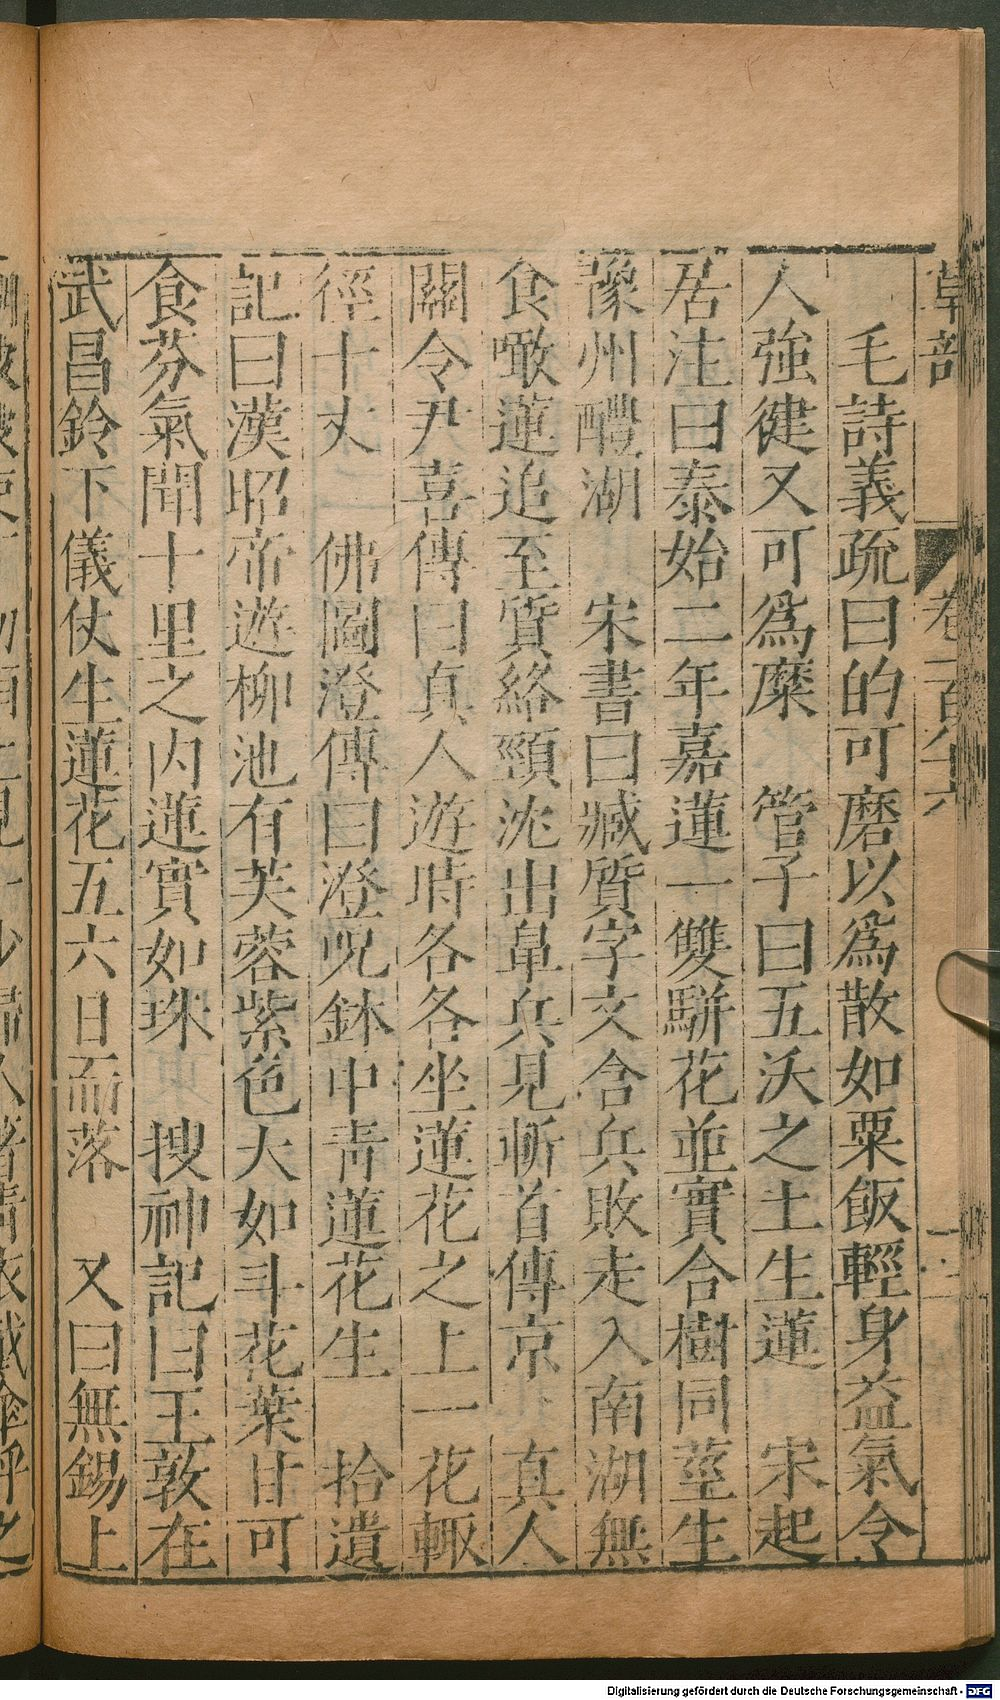 草部 卷一百八十六
毛詩義疏曰的可磨以爲散如粟飯輕身益氣令
人強健又可爲糜 管子曰五沃之土生蓮 宋起
居注曰泰始二年嘉蓮一雙駢花並實合樹同莖生
豫州醴湖 宋書曰臧質字文含兵敗走入南湖無
食噉蓮追至質絡頸沈出鼻兵見斬首傳京 真人
關令尹喜傳曰真人遊時各各坐蓮花之上一花輙
徑十丈 佛圖澄傳曰澄呪鉢中青蓮花生 拾遺
記曰漢昭帝遊柳池有芙蓉紫色大如斗花葉甘可
食芬氣聞十里之内蓮實如珠 搜神記曰王敦在
武昌鈴下儀仗生蓮花五六日而落 又曰無錫上
Digitalisierung gefördert durch die Deutsche Forschungsgemeinschaft - DFG